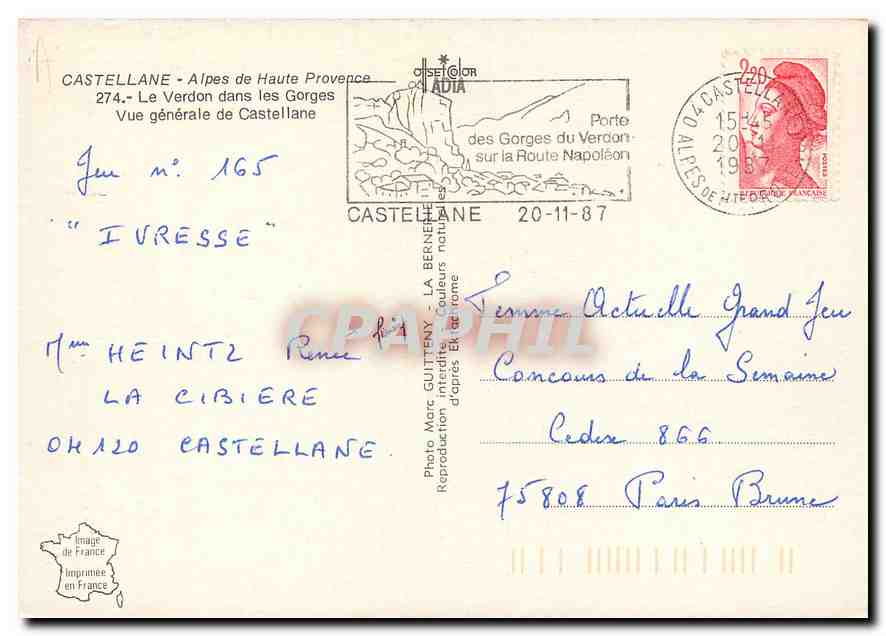 CASTELLANE - Alpes de Haute Provence
274.- Le Verdon dans les Gorges
Vue générale de Castellane
OFFSET COLOR
ADIA
Porte
des Gorges du Verdon
sur la Route Napoléon
CASTELLANE 20-11-87
04 CASTELLANE
15H45
1987
ALPES DE HTE
2,20
POSTES
REPUBLIQUE FRANÇAISE
Jeu n° 165
"IVRESSE"
Mme HEINTZ Renée
LA CIBIERE
04120 CASTELLANE.
Photo Marc GUITTENY - LA BERNERIE
Reproduction interdite Couleurs naturelles
d'après Ektachrome
CPAPHIL
Femme Actuelle Grand Jeu
Concours de la Semaine
Cedex 866
75808 Paris Brune
Image
de France
Imprimée
en France